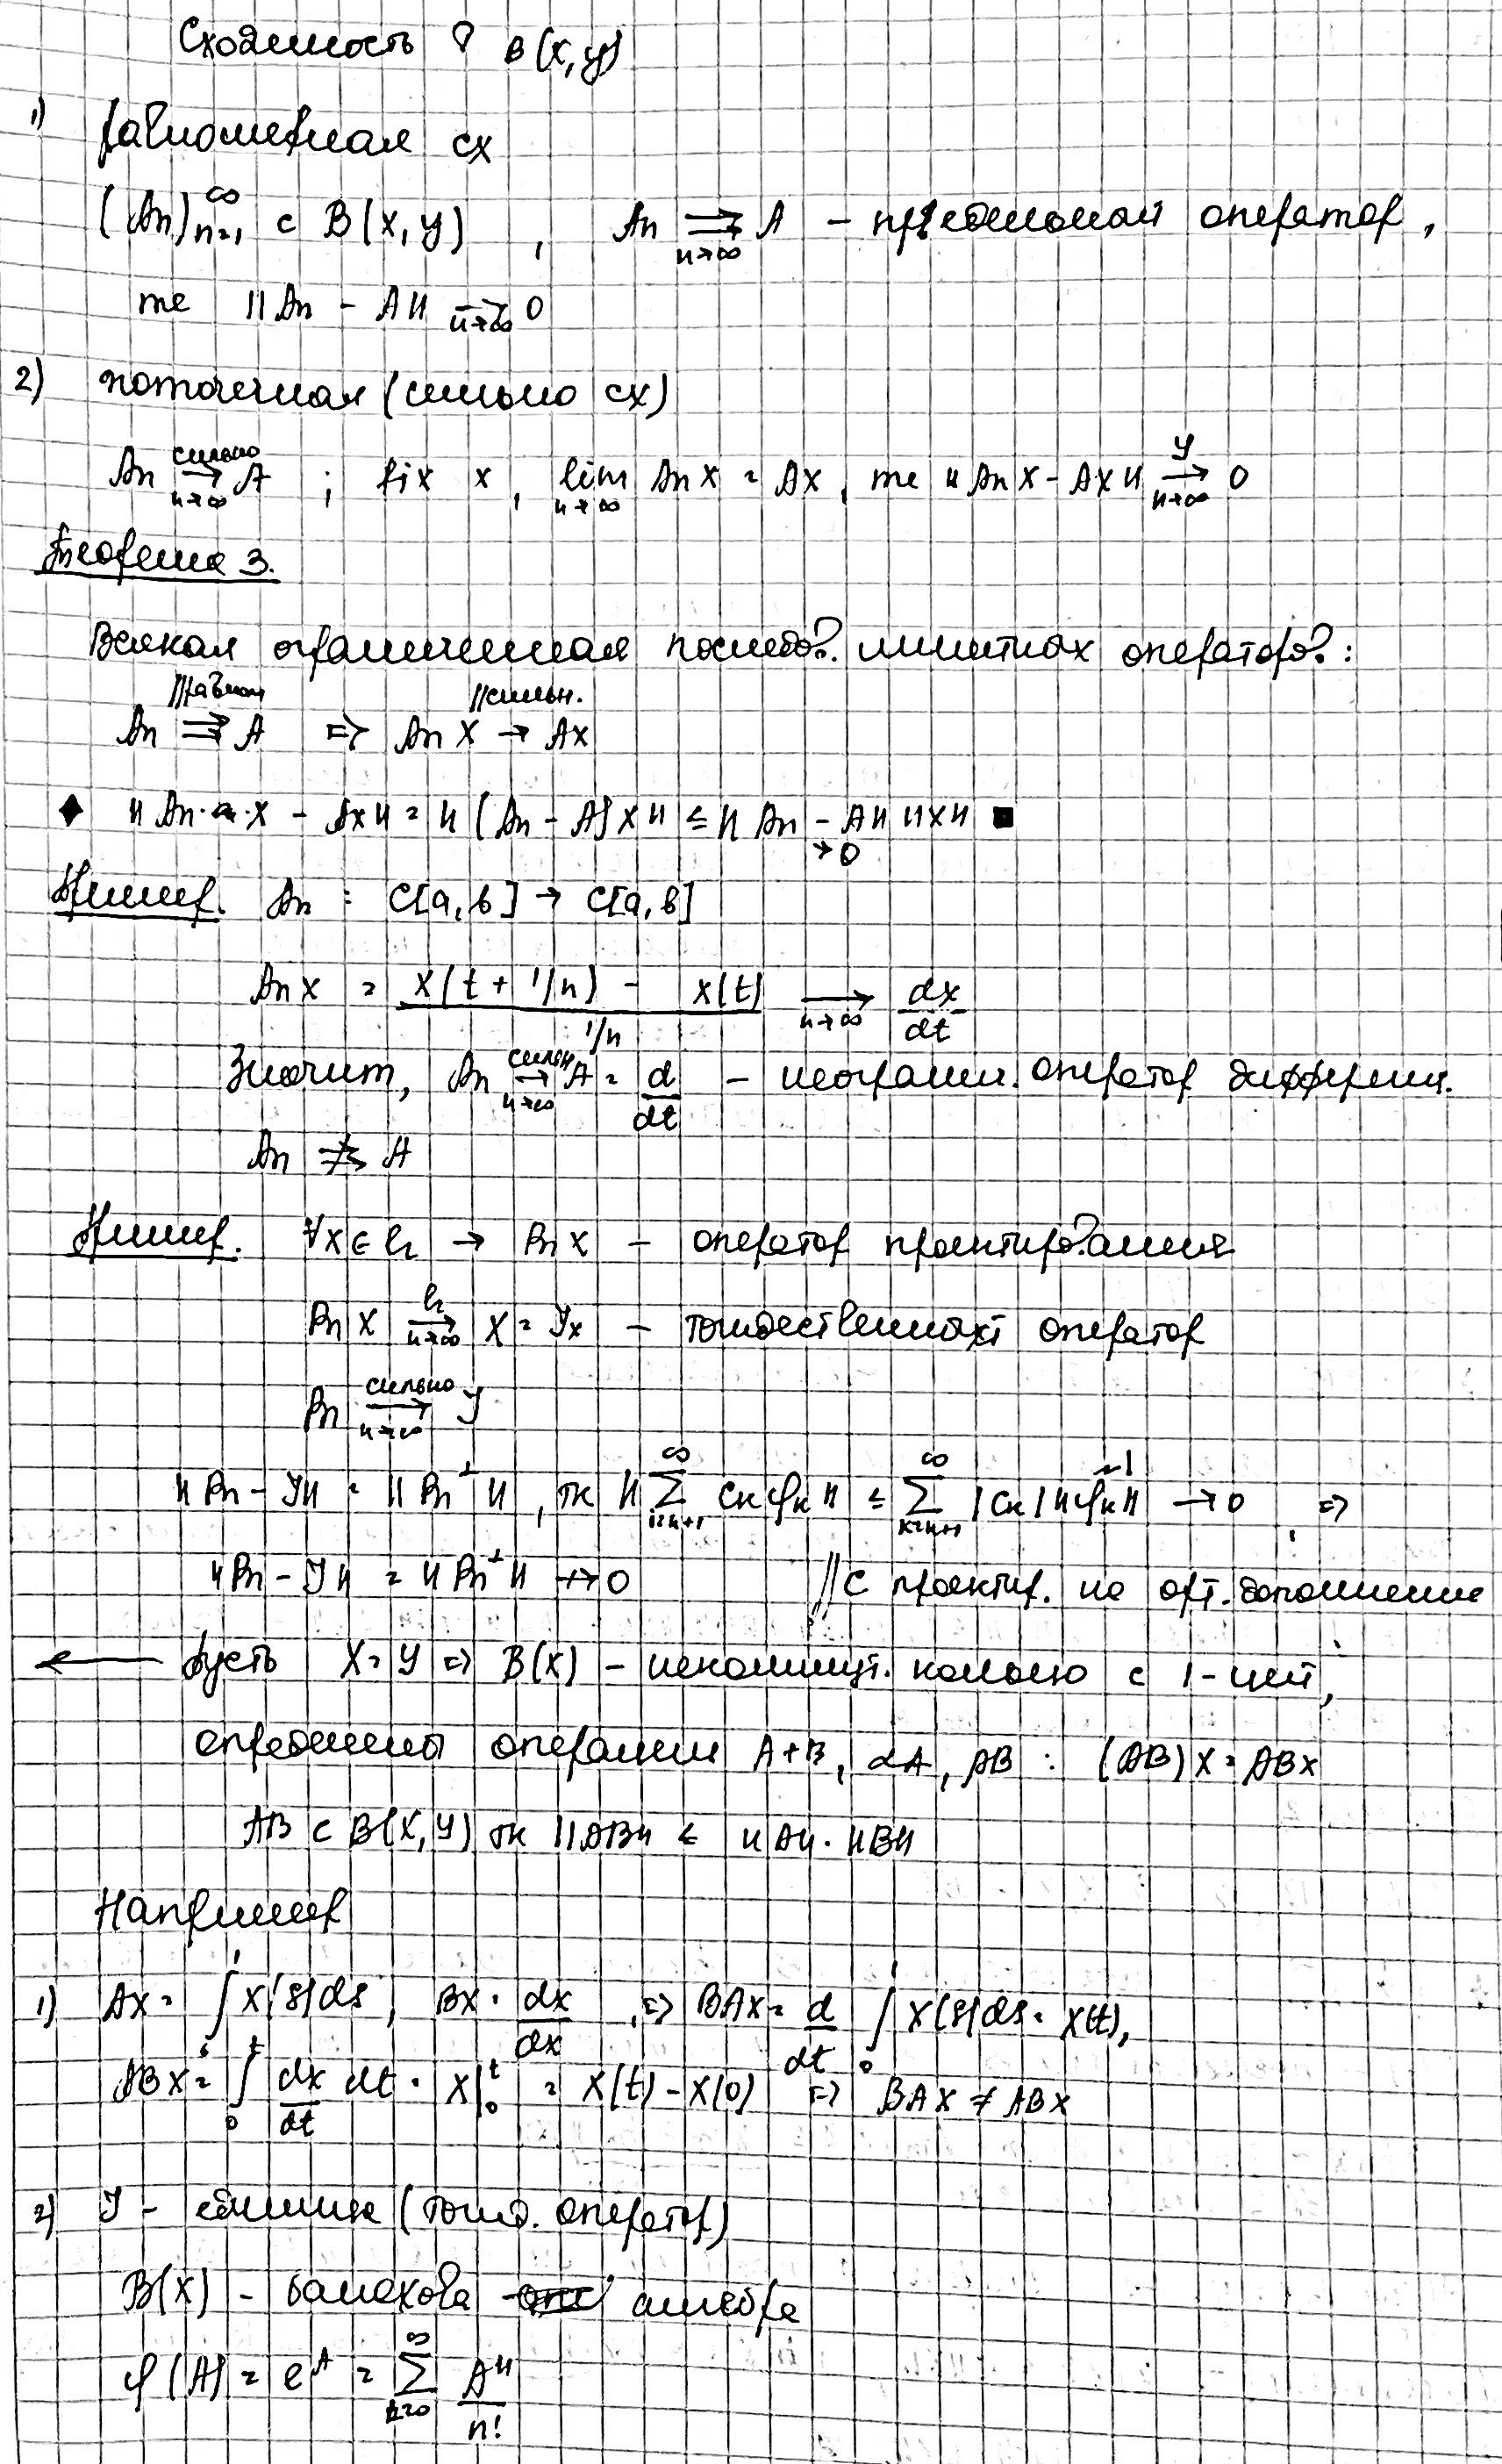 Сходимость в B(X,Y)
1) равномерная сх
(An)_{n=1}^∞ ⊂ B(X,Y), An ⇉_{n→∞} A – предельный оператор,
те ||An - A|| →_{n→∞} 0
2) поточечная (сильно сх)
An →^{сильно}_{n→∞} A ; fix x, lim_{n→∞} An x = Ax, те ||An x - Ax|| →^{Y}_{n→∞} 0
Теорема 3.
Всякая ограниченная последов. линейных операторов:
//равном //сильн.
An ⇉ A ⇒ An x → Ax
♦ ||An x - Ax|| = ||(An - A)x|| ≤ ||An - A|| ||x|| ■
→ 0
Пример. An : C[a,b] → C[a,b]
An x = (x(t + 1/n) - x(t)) / (1/n) →_{n→∞} dx/dt
Значит, An →^{сильн}_{n→∞} A = d/dt – неогранич. оператор дифференц.
An ⇉̸ A
Пример. ∀x ∈ l₂ → Pn x – оператор проектирования
Pn x →^{l₂}_{n→∞} x = Jx – тождественный оператор
Pn →^{сильно}_{n→∞} J
||Pn - J|| = ||Pn^⊥||, тк ||∑_{i=n+1}^∞ Ck φk|| ≤ ∑_{k=n+1}^∞ |Ck| ||φk||^{~1} → 0, ⇒
||Pn - J|| = ||Pn^⊥|| ↛ 0 //с проектир. на орт. дополнение
← Пусть X = Y ⇒ B(X) – некоммут. кольцо с 1-цей,
определены операции A+B, αA, AB : (AB)x = ABx
AB ⊂ B(X,Y) тк ||AB|| ≤ ||A||·||B||
Например
1) Ax = ∫_0^1 x(s)ds, Bx = dx/dx, ⇒ BAx = d/dt ∫_0^1 x(s)ds = x(t),
ABx = ∫_0^t dx/dt dt = x|_0^t = x(t) - x(0) ⇒ BAx ≠ ABx
2) J – единица (тожд. оператор)
B(X) – банахова алгебра
φ(A) = e^A = ∑_{n=0}^∞ A^n/n!